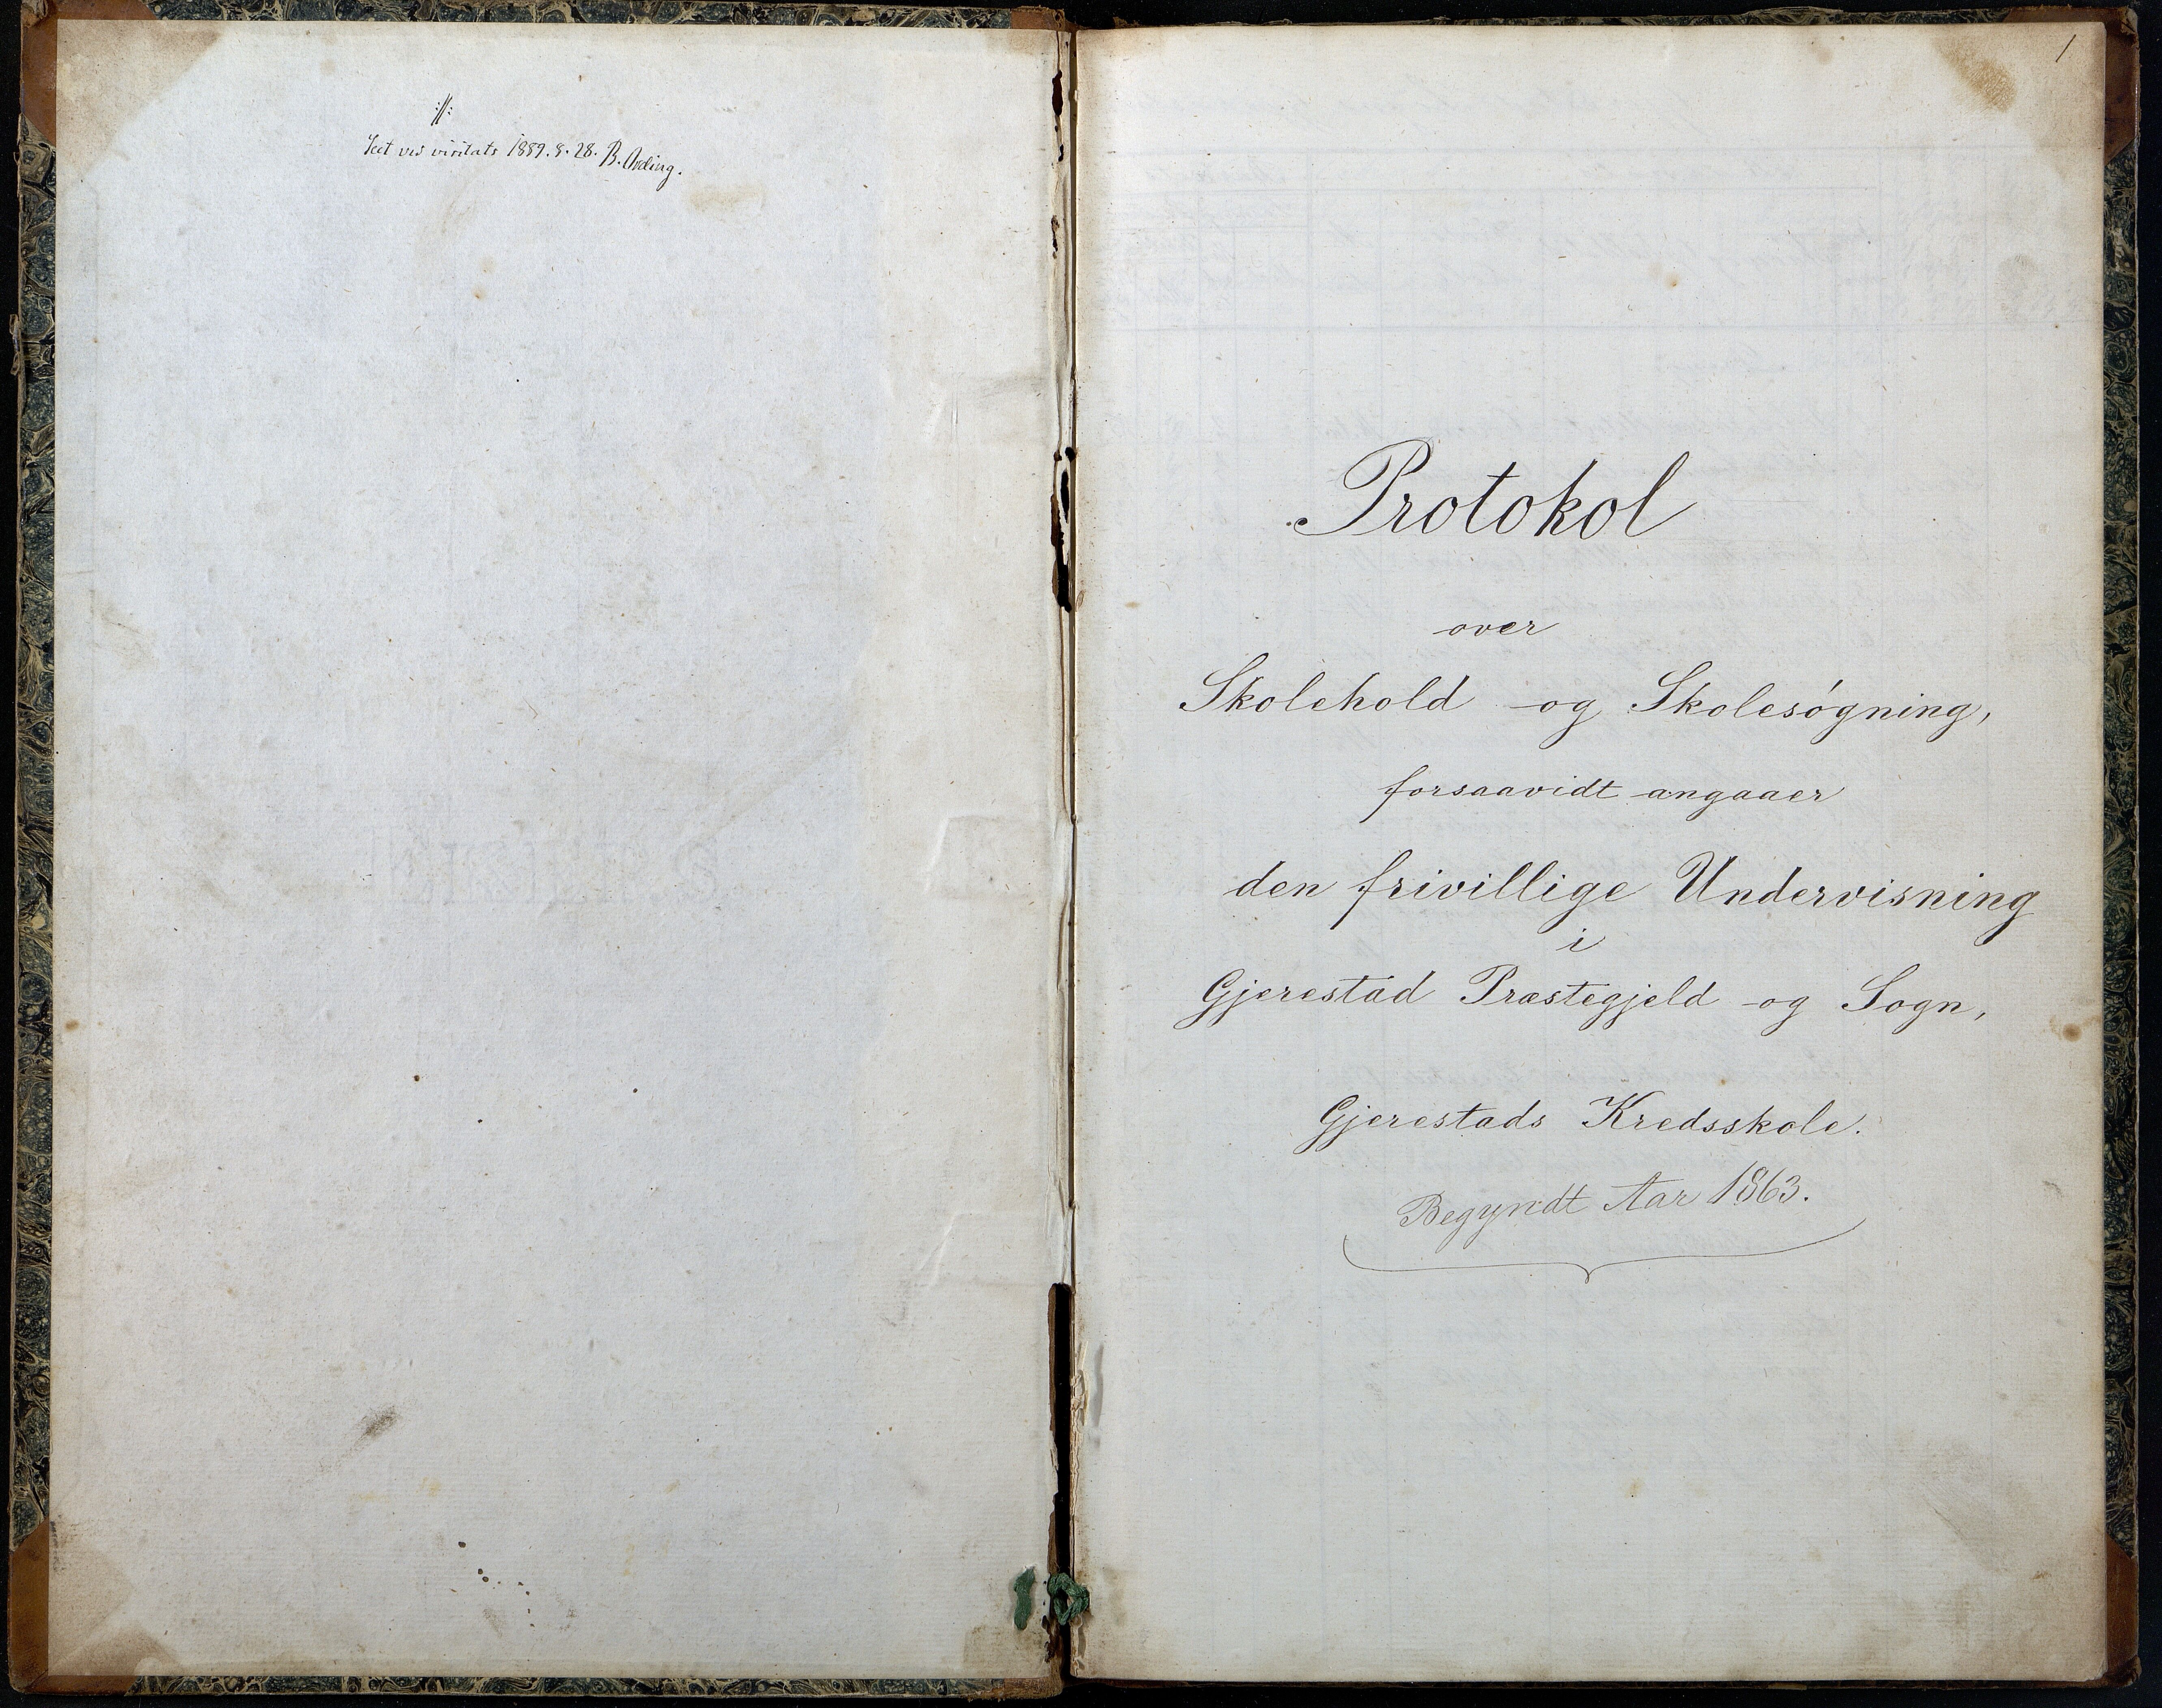 ://:
Seet ved visitats 1889. 8. 28. B. Arding.
1
Protokol
over
Skolehold og Skolesøgning,
forsaavidt angaaer
den frivillige Undervisning
i
Gjerestad Præstegjeld og Sogn,
Gjerestads Kredsskole.
Begyndt Aar 1863.